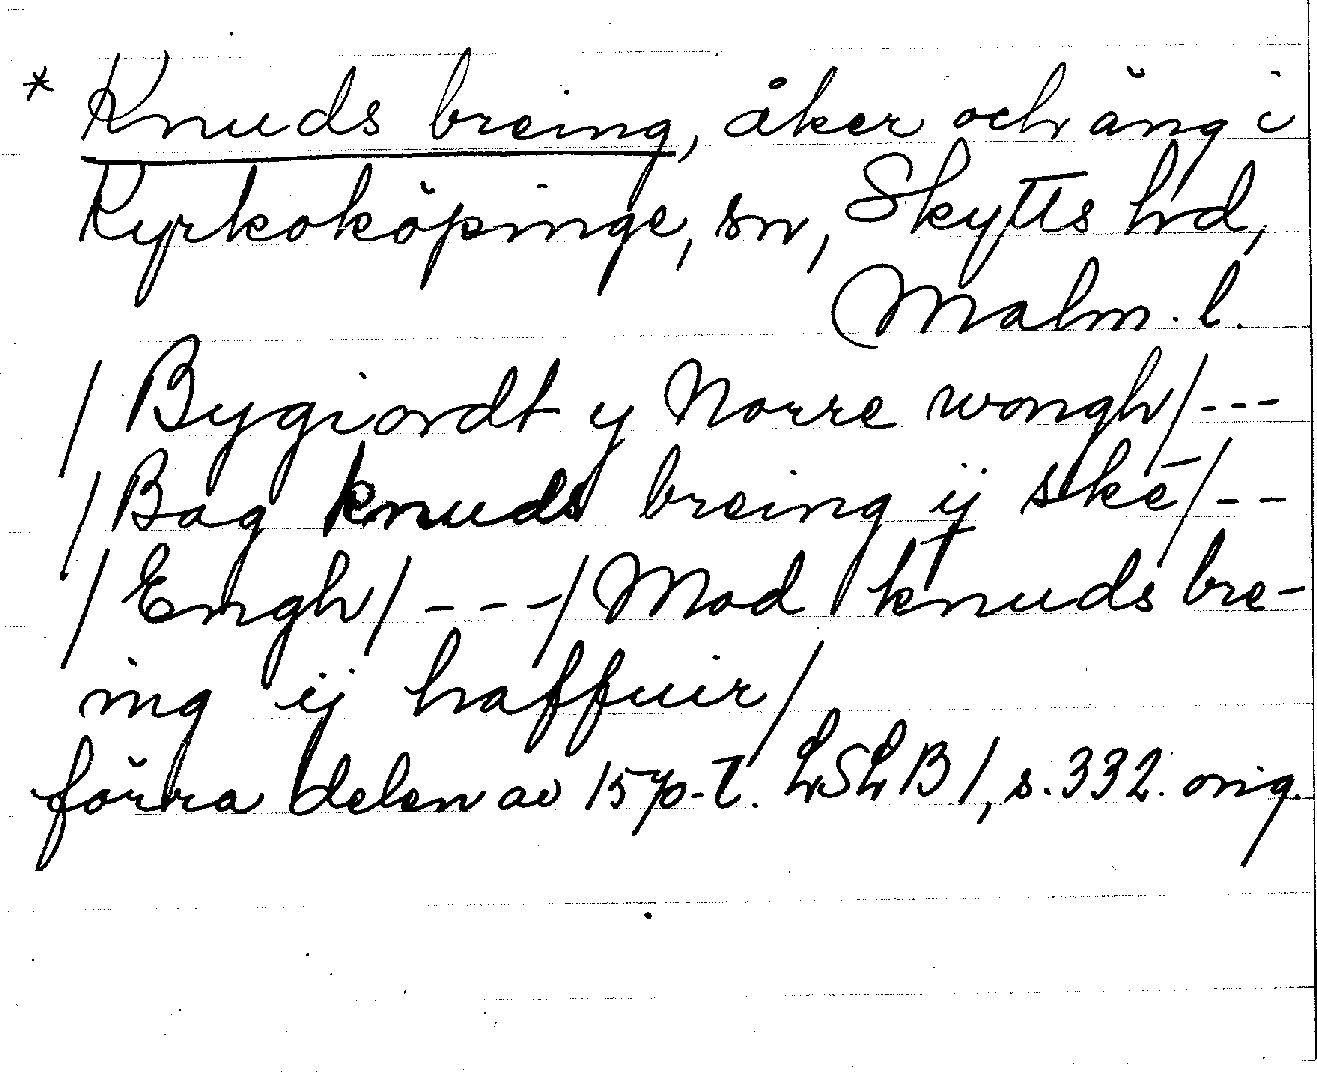 * Knuds breing, åker och äng i
Kyrkoköpinge, sn, Skytts hd,
Malm. l.
/ Bygiordt y Norre wongh/---
/ Bag knuds breing ij skē/--
/ Emgh/---/ Mod knuds bre-
ing ij haffuir/
förra delen av 1570-t. LSLB 1, s. 332. orig.